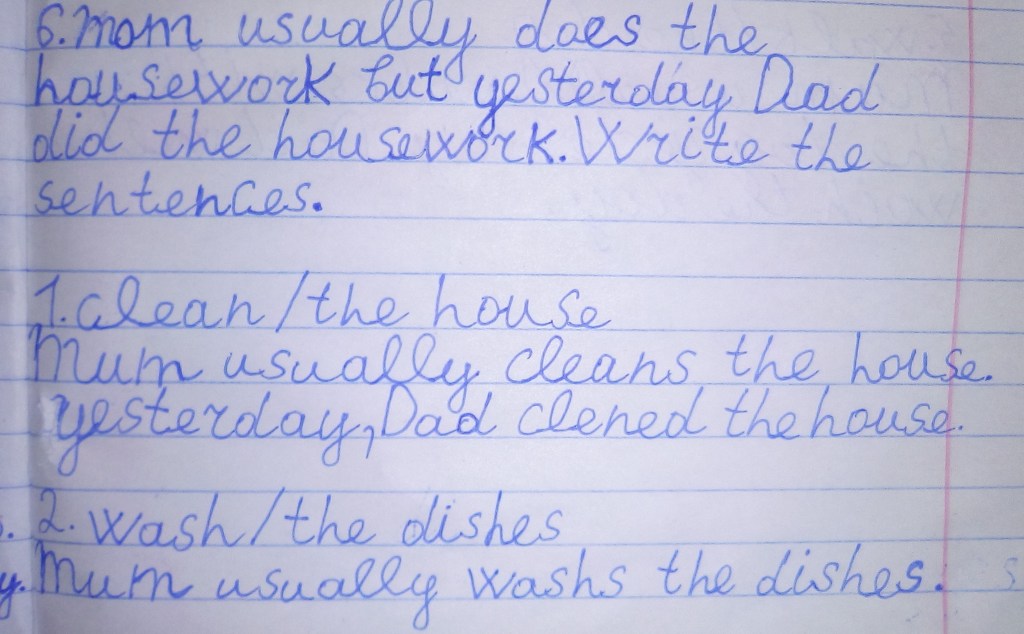 6. Mom usually does the
housework but yesterday Dad
did the housework. Write the
sentences.
1. clean/the house
Mum usually cleans the house.
yesterday, Dad clened the house.
2. wash/the dishes
Mum usually washs the dishes.